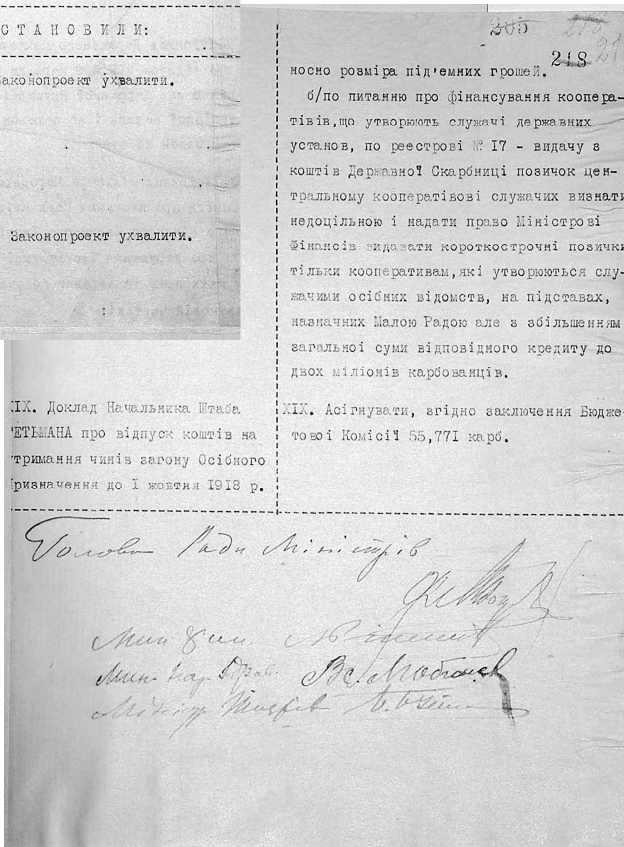 СТАНОВИЛИ:
Законопроект ухвалити.
Законопроект ухвалити.
205
218
носно розміра під'емних грошей.
б/по питанню про фінансування коопера-
тівів,що утворюють служачі державних
установ, по реестрові № 17 - видачу з
коштів Державної Скарбниці позичок цен-
тральному кооперативові служачих визнати
недоцільною і надати право Міністрові
Фінансів видавати короткострочні позички
тільки кооперативам,які утворюються слу-
жачими осібних відомств, на підставах,
назначних Малою Радою але з збільшенням
загальної суми відповідного кредиту до
двох міліонів карбованців.
XIX. Доклад Начальника Штаба
ГЕТЬМАНА про відпуск коштів на
утримання чинів загону Осібного
Призначення до 1 жовтня 1918 р.
XIX. Асігнувати, згідно заключення Бюдже-
тової Комісії 55,771 карб.
Голова Ради Міністрів
Мін
Мін. нар. здрав. Вс. Любинск
Міністр